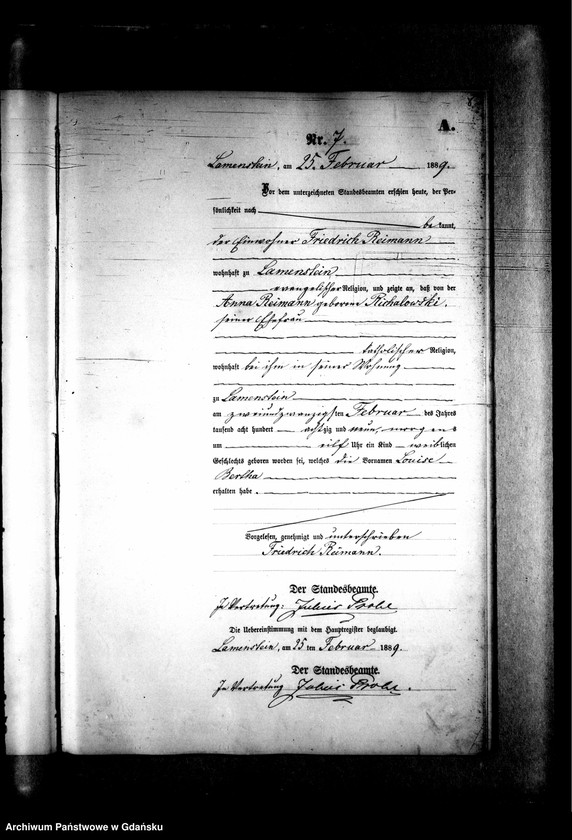 A.
Nr. 7.
Lamenstein, am 25. Februar 1889.
Vor dem unterzeichneten Standesbeamten erschien heute, der Per-
sönlichkeit nach
be kannt,
der Einwohner Friedrich Reimann
wohnhaft zu Lamenstein
evangelischer Religion, und zeigte an, daß von der
Anna Reimann geborene Richalowski,
seiner Ehefrau
katholischer Religion,
wohnhaft bei ihm in seiner Wohnung
zu Lamenstein
am zweiundzwanzigsten Februar des Jahres
tausend acht hundert achtzig und neun, morgens
um eilf Uhr ein Kind weiblichen
Geschlechts geboren worden sei, welches die Vornamen Louise
Bertha
erhalten habe.
Vorgelesen, genehmigt und unterschrieben
Friedrich Reimann.
Der Standesbeamte.
In Vertretung: Julius
Die Uebereinstimmung mit dem Hauptregister beglaubigt.
Lamenstein, am 25 ten Februar 1889.
Der Standesbeamte.
In Vertretung Julius
Archiwum Państwowe w Gdańsku